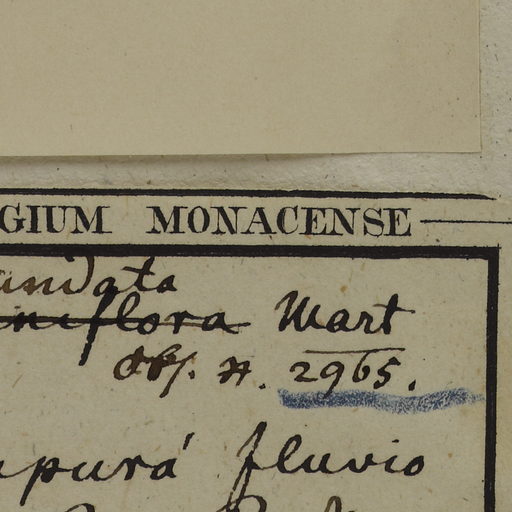 GIUM MONACENSE
andata
iniflora Mart
Obs. n. 2965.
apurá fluvio